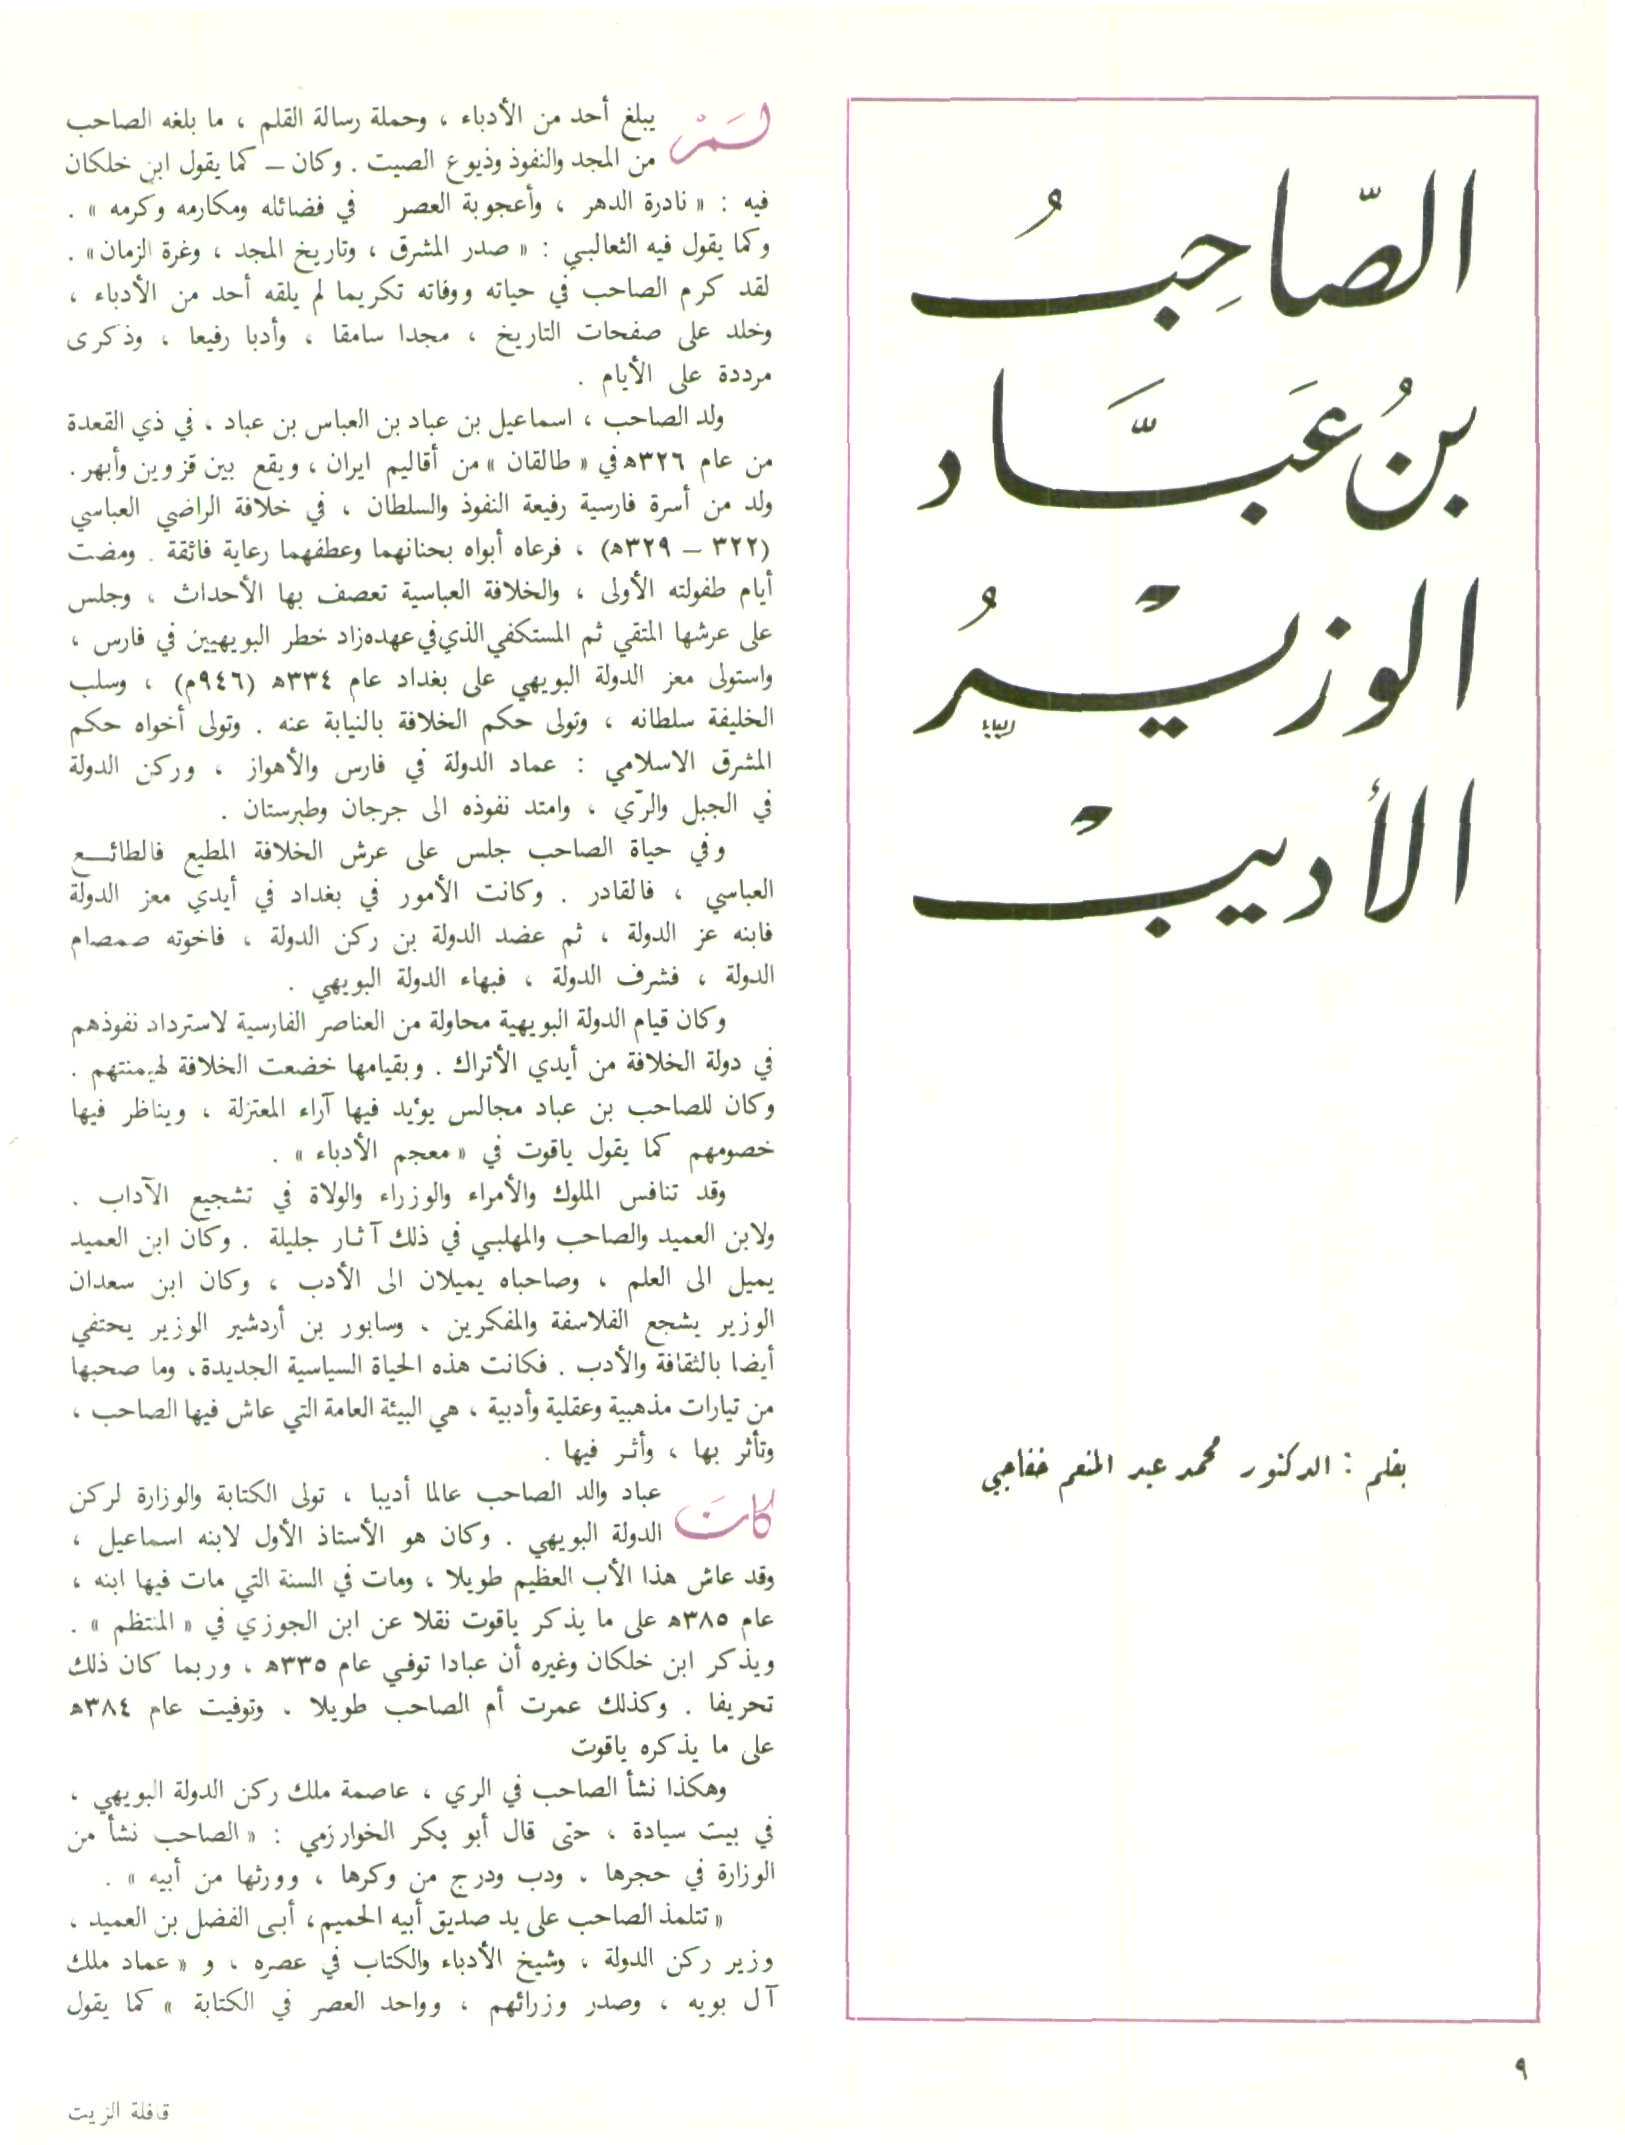 الصَّاحِبُ
بنُ عَبَّاد
الوزيْرُ
الأديبْ
بقلم : الدكتور محمد عبد المنعم خفاجي
لَمْ يبلغ أحد من الأدباء ، وحملة رسالة القلم ، ما بلغه الصاحب
من المجد والنفوذ وذيوع الصيت . وكان – كما يقول ابن خلكان
فيه : « نادرة الدهر ، وأعجوبة العصر في فضائله ومكارمه وكرمه » .
وكما يقول فيه الثعالبي : « صدر المشرق ، وتاريخ المجد ، وغرة الزمان» .
لقد كرم الصاحب في حياته ووفاته تكريما لم يلقه أحد من الأدباء ،
وخلد على صفحات التاريخ ، مجدا سامقا ، وأدبا رفيعا ، وذكرى
مرددة على الأيام .
ولد الصاحب ، اسماعيل بن عباد بن العباس بن عباد ، في ذي القعدة
من عام ٣٢٦ه في « طالقان » من أقاليم ايران ، ويقع بين قزوين وأبهر .
ولد من أسرة فارسية رفيعة النفوذ والسلطان ، في خلافة الراضي العباسي
(٣٢٢ – ٣٢٩ه) ، فرعاه أبواه بحنانهما وعطفهما رعاية فائقة . ومضت
أيام طفولته الأولى ، والخلافة العباسية تعصف بها الأحداث ، وجلس
على عرشها المتقي ثم المستكفي الذي في عهده زاد خطر البويهيين في فارس ،
واستولى معز الدولة البويهي على بغداد عام ٣٣٤ه (٩٤٦م) ، وسلب
الخليفة سلطانه ، وتولى حكم الخلافة بالنيابة عنه . وتولى أخواه حكم
المشرق الاسلامي : عماد الدولة في فارس والأهواز ، وركن الدولة
في الجبل والرّي ، وامتد نفوذه الى جرجان وطبرستان .
وفي حياة الصاحب جلس على عرش الخلافة المطيع فالطائـع
العباسي ، فالقادر . وكانت الأمور في بغداد في أيدي معز الدولة
فابنه عز الدولة ، ثم عضد الدولة بن ركن الدولة ، فاخوته صمصام
الدولة ، فشرف الدولة ، فبهاء الدولة البويهي .
وكان قيام الدولة البويهية محاولة من العناصر الفارسية لاسترداد نفوذهم
في دولة الخلافة من أيدي الأتراك . وبقيامها خضعت الخلافة لهيمنتهم .
وكان للصاحب بن عباد مجالس يؤيد فيها آراء المعتزلة ، ويناظر فيها
خصومهم كما يقول ياقوت في « معجم الأدباء » .
وقد تنافس الملوك والأمراء والوزراء والولاة في تشجيع الآداب .
ولابن العميد والصاحب والمهلبي في ذلك آثار جليلة . وكان ابن العميد
يميل الى العلم ، وصاحباه يميلان الى الأدب ، وكان ابن سعدان
الوزير يشجع الفلاسفة والمفكرين ، وسابور بن أردشير الوزير يحتفي
أيضا بالثقافة والأدب . فكانت هذه الحياة السياسية الجديدة، وما صحبها
من تيارات مذهبية وعقلية وأدبية ، هي البيئة العامة التي عاش فيها الصاحب ،
وتأثر بها ، وأثر فيها .
كانَ عباد والد الصاحب عالما أديبا ، تولى الكتابة والوزارة لركن
الدولة البويهي . وكان هو الأستاذ الأول لابنه اسماعيل ،
وقد عاش هذا الأب العظيم طويلا ، ومات في السنة التي مات فيها ابنه ،
عام ٣٨٥ه على ما يذكر ياقوت نقلا عن ابن الجوزي في « المنتظم » .
ويذكر ابن خلكان وغيره أن عبادا توفي عام ٣٣٥ه ، وربما كان ذلك
تحريفا . وكذلك عمرت أم الصاحب طويلا ، وتوفيت عام ٣٨٤ه
على ما يذكره ياقوت
وهكذا نشأ الصاحب في الري ، عاصمة ملك ركن الدولة البويهي ،
في بيت سيادة ، حتى قال أبو بكر الخوارزمي : « الصاحب نشأ من
الوزارة في حجرها ، ودب ودرج من وكرها ، وورثها من أبيه » .
« تتلمذ الصاحب على يد صديق أبيه الحميم، أبي الفضل بن العميد ،
وزير ركن الدولة ، وشيخ الأدباء والكتاب في عصره ، و « عماد ملك
آل بويه ، وصدر وزرائهم ، وواحد العصر في الكتابة » كما يقول
٩
قافلة الزيت